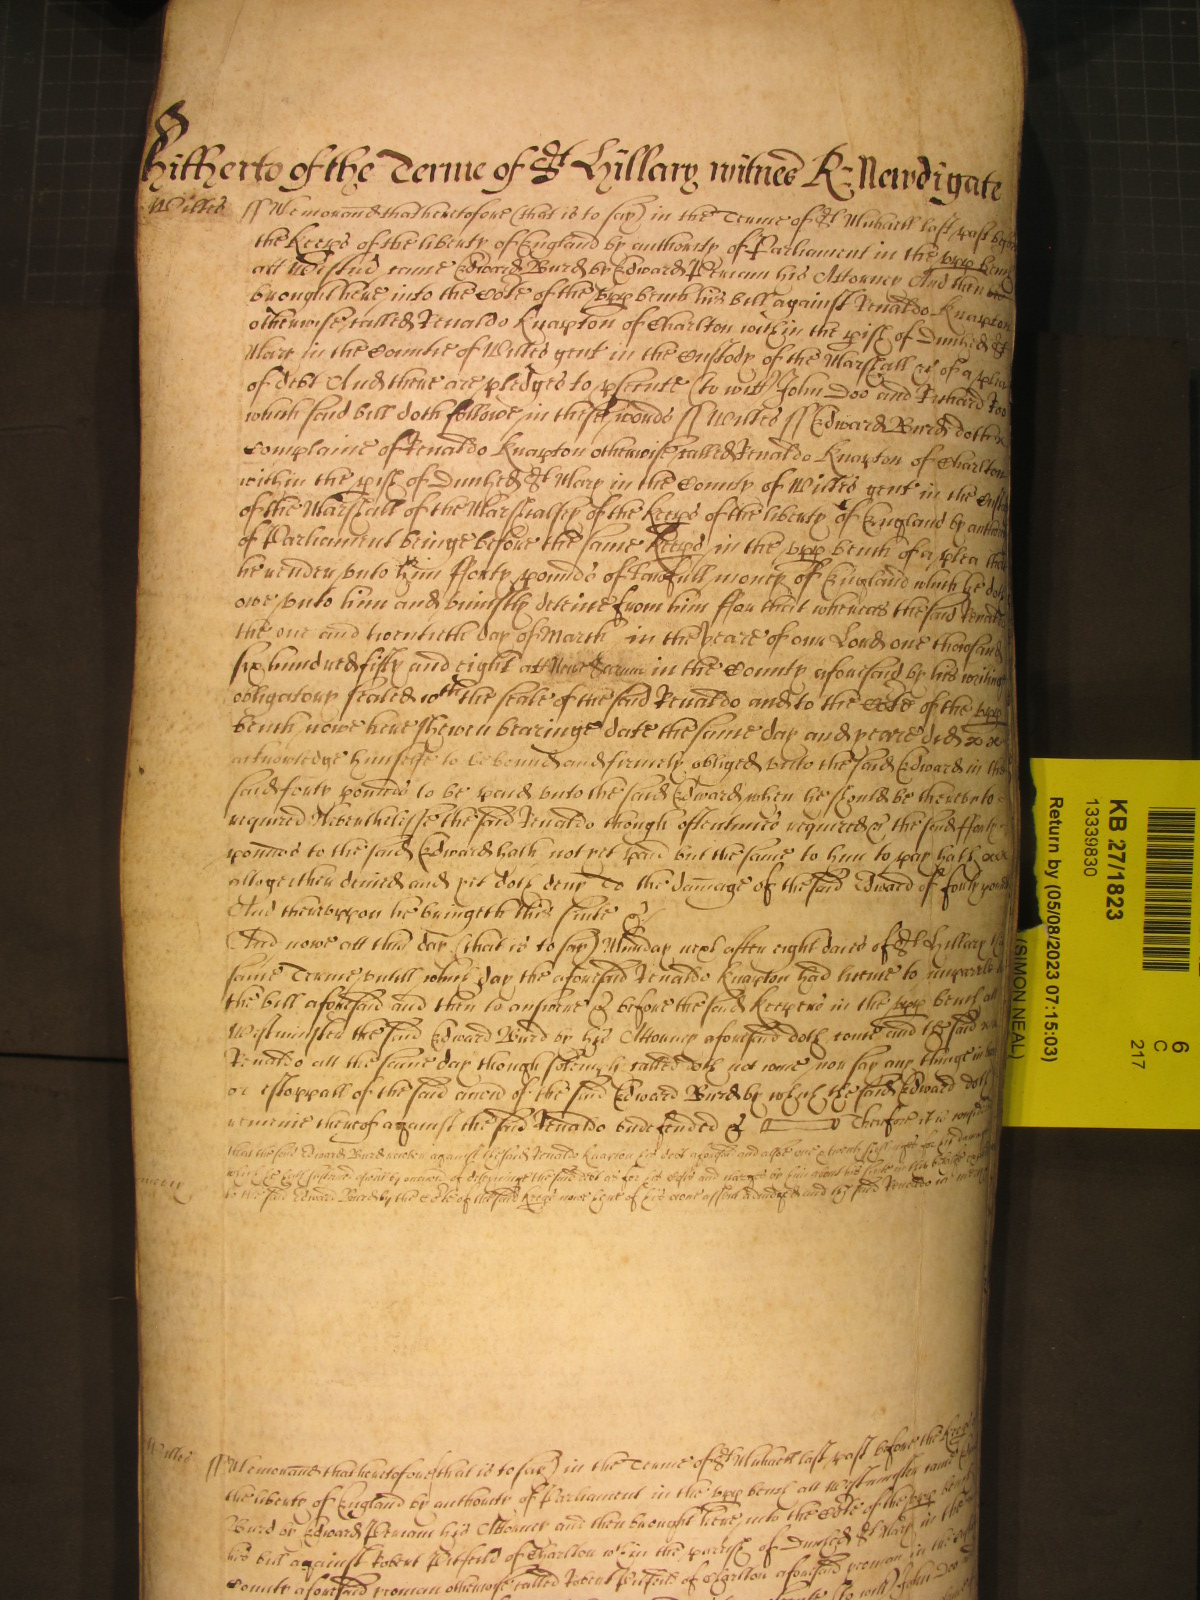 hitherto of the Terme of St Hillary witnes R: Newdigate
Willes ss Memorand that heretofore (that is to say) in the Terme of St Michaell last past before
the keeps of the liberty of England by authority of Parliament in the upp bench
att Westmr came Edward Burd by Edward Periam his Attorney And then
brought here into the Cote of the upp bench his bill against Renaldo Knapton
otherwise called Renaldo Knapton of Charlton within the pish of Dunhed St
Mary in the Countie of Willes gent in the Custody of the Marshall &c of a plea
of debt And there are pledges to psecute (to witt) John Doo and Richard Roo
which said bill doth followe in these words ss Willes ss Edward Burd doth
Complaine of Renaldo Knapton otherwise called Renaldo Knapton of Charlton
within the pish of Dunhed St Mary in the County of Willes gent in the Custody
of the Marshall of the Marshalsey of the keeps of the liberty of England by authority
of Parliament beinge before the same keeps in the upp bench of a plea that
he render unto him fforty pounds of lawfull money of England which he doth
owe unto him and uniustly deteine from him ffor that whereas the said Renaldo
the one and twentieth day of March in the yeare of our Lord one thousand
six hundred fifty and eight att New Sarum in the County aforesaid by his writinge
obligatory sealed wth the seale of the said Renaldo and to the Cote of the upp
bench nowe here shewen bearinge date the same day and yeare did
acknowledge himselfe to be bound and firmely obliged unto the said Edward in the
said forty pounds to be paid unto the said Edward when he should be thereunto
required Neverthelesse the said Renaldo though oftentimes required &c the said fforty
pounds to the said Edward hath not yet paid but the same to him to pay hath
altogether denied and yet doth deny To the damage of the said Edward of forty pounds
And thereuppon he bringeth this suite &c
And nowe att this day (that is to say) Munday next after eight daies of St Hillary
same Terme untill which day the aforesaid Renaldo Knapton had licence to imparle to
the bill aforesaid and then to answere &c before the said keepers in the upp bench att
Westminster the said Edward Burd by his Attorney aforesaid doth come and the said
Renaldo att the same day though solemply called doth not come nor say any thinge in
or estoppall of the said accon of the said Edward Burd by which the said Edward doth
remaine thereof against the said Renaldo undefended &c Therefore it is
that the said Edward Burd recover against the said Renaldo Knapton his debt aforesaid and alsoe
of deteininge the said debt as for his costs and charges by him about his suite in this behalfe
to the said Edward Burd by the Cote of the said keeps nowe here of his owne assent adiudged and the said Renaldo in mercy
mercy
Willes ss Memorand that heretofore (that is to say) in the Terme of St Michaell last past before the keeps
the liberty of England by authority of Parliament in the upp bench att Westminster came
Burd by Edward Periam his Attorney and then brought here into the Cote of the upp bench
his bill against Robert Pitfeild of Charlton wthin the parish of Dunhed St Mary in the
County aforesaid yeoman otherwise called Robert Pitfeild of Charlton aforesaid yeoman in the
(to witt) John Doo
KB 27/1823
13339830
Return by (05/08/2023 07:15:03)
(SIMON NEAL)
6
C
217